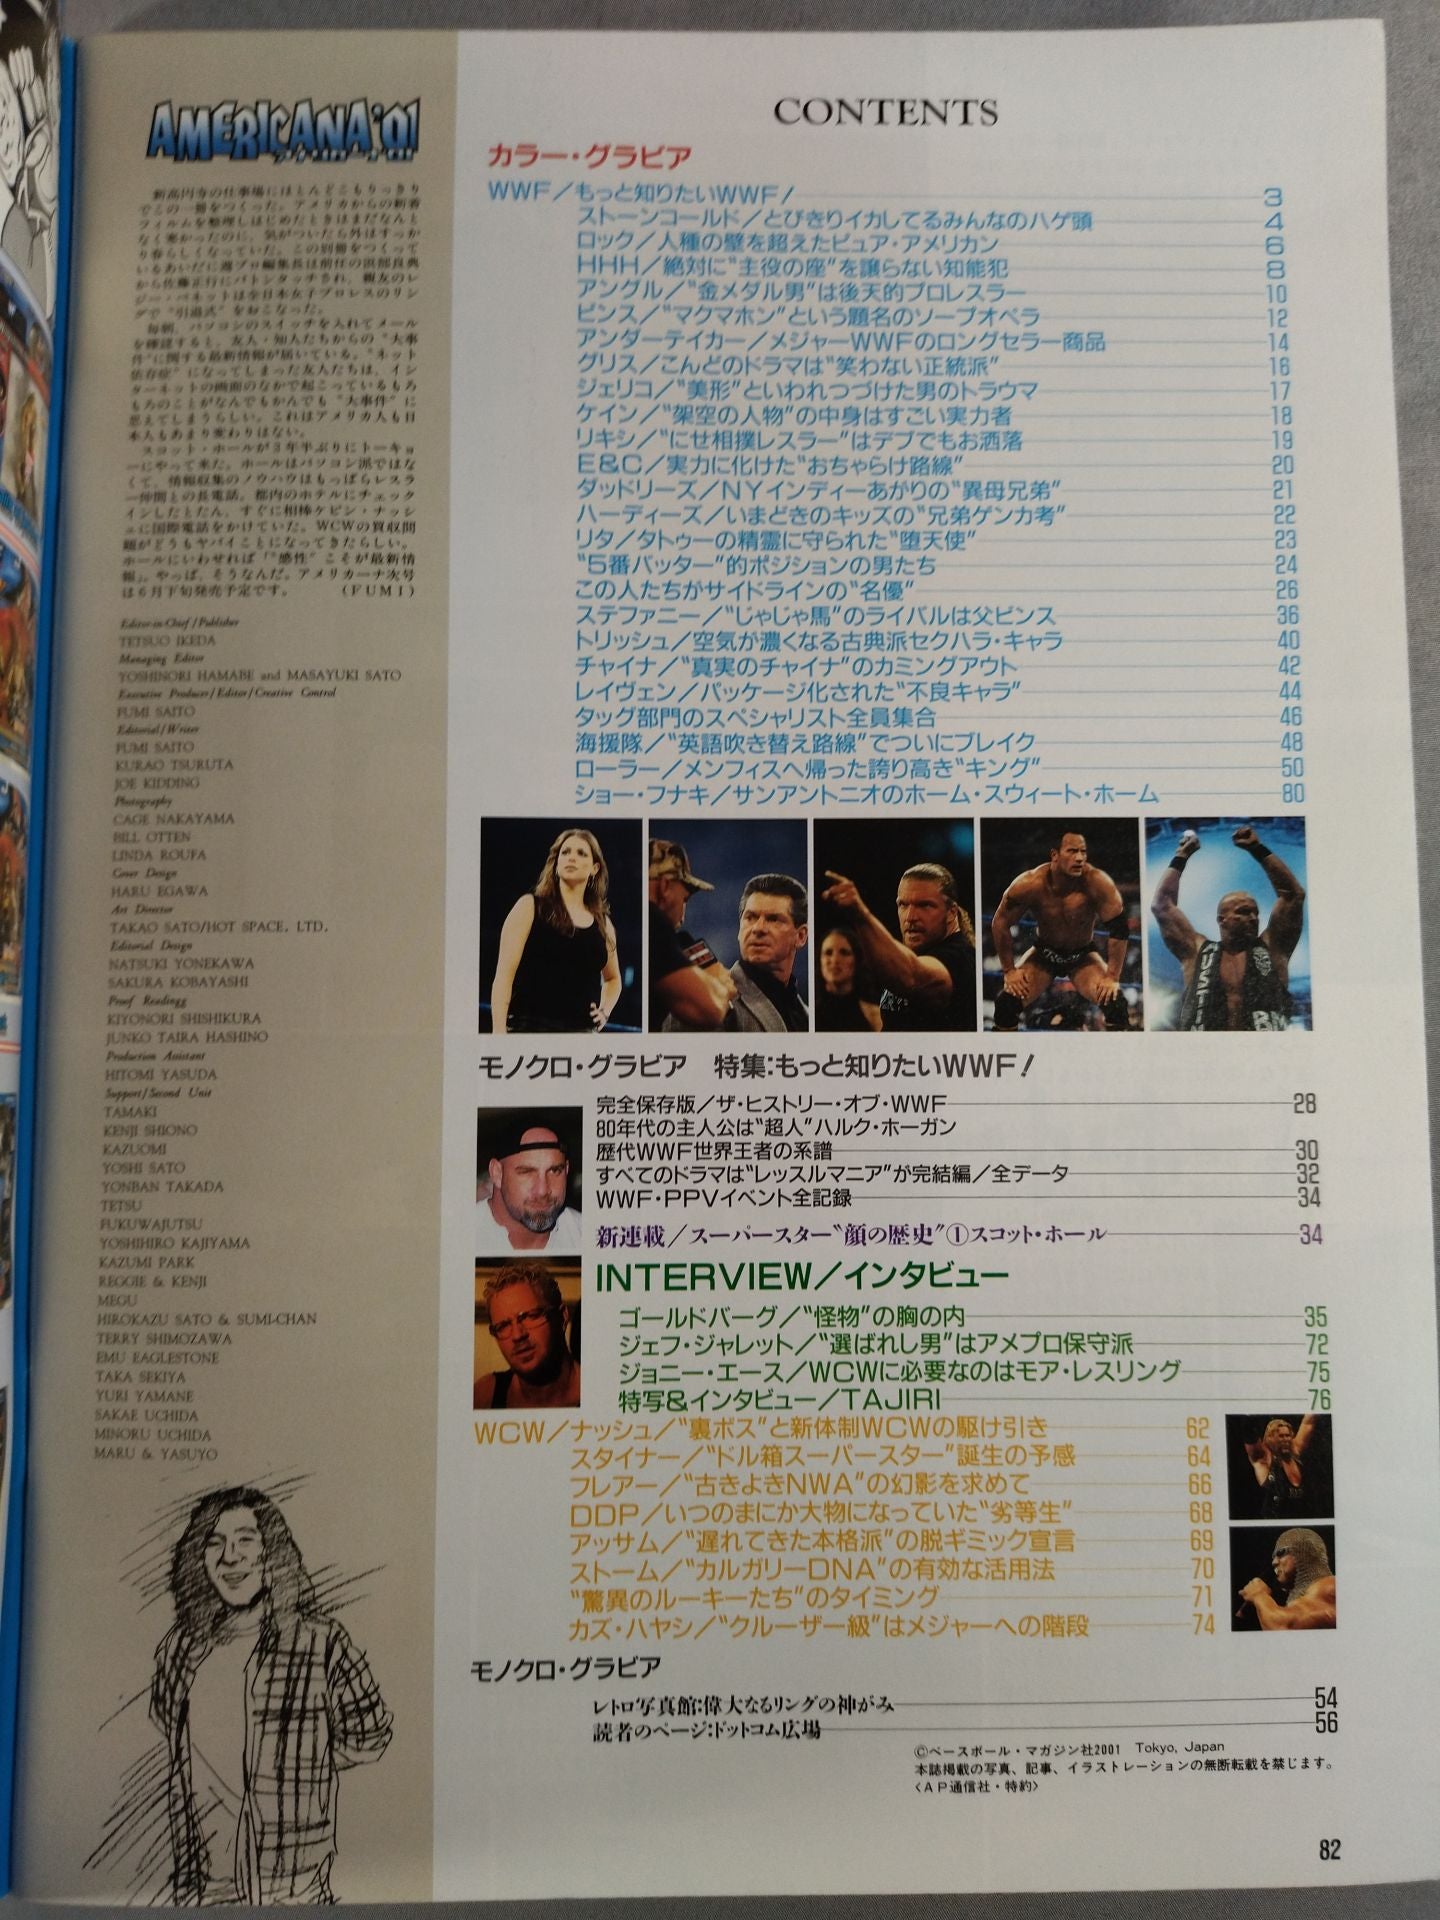 AMERICANA'01
新高円寺の仕事場にほとんどこもりっきり
でこの一冊をつくった。アメリカからの新着
フィルムを整理しはじめたときはまだなんと
なく寒かったのに、気がついたら外はすっか
り春らしくなっていた。この別冊をつくって
いるあいだに週プロ編集長は前任の浜部良典
から佐藤正行にバトンタッチされ、親友のレ
ジー・ベネットは全日本女子プロレスのリン
グで"引退式"をおこなった。
毎朝、パソコンのスイッチを入れてメール
を確認すると、友人・知人たちからの"大事
件"に関する最新情報が届いている。"ネット
依存症"になってしまった友人たちは、イン
ターネットの画面のなかで起こっているもろ
もろのことがなんでもかんでも"大事件"に
思えてしまうらしい。これはアメリカ人も日
本人もあまり変わりはない。
スコット・ホールが3年半ぶりにトーキョ
ーにやって来た。ホールはパソコン派ではな
くて、情報収集のノウハウはもっぱらレスラ
ー仲間との長電話。都内のホテルにチェック
インしたとたん、すぐに相棒ケビン・ナッシ
ュに国際電話をかけていた。WCWの買収問
題がどうもヤバイことになってきたらしい。
ホールにいわせれば「"感性"こそが最新情
報」。やっぱ、そうなんだ。アメリカーナ次号
は6月下旬発売予定です。 (FUMI)
Editor-in-Chief/Publisher
TETSUO IKEDA
Managing Editor
YOSHINORI HAMABE and MASAYUKI SATO
Executive Producer/Editor/Creative Control
FUMI SAITO
Editorial/Writer
FUMI SAITO
KURAO TSURUTA
JOE KIDDING
Photography
CAGE NAKAYAMA
BILL OTTEN
LINDA ROUFA
Cover Design
HARU EGAWA
Art Director
TAKAO SATO/HOT SPACE, LTD.
Editorial Design
NATSUKI YONEKAWA
SAKURA KOBAYASHI
Proof Readingg
KIYONORI SHISHIKURA
JUNKO TAIRA HASHINO
Production Assistant
HITOMI YASUDA
Support/Second Unit
TAMAKI
KENJI SHIONO
KAZUOMI
YOSHI SATO
YONBAN TAKADA
TETSU
FUKUWAJUTSU
YOSHIHIRO KAJIYAMA
KAZUMI PARK
REGGIE & KENJI
MEGU
HIROKAZU SATO & SUMI-CHAN
TERRY SHIMOZAWA
EMU EAGLESTONE
TAKA SEKIYA
YURI YAMANE
SAKAE UCHIDA
MINORU UCHIDA
MARU & YASUYO
CONTENTS
カラー・グラビア
WWF/もっと知りたいWWF! 3
ストーンコールド/とびきりイカしてるみんなのハゲ頭 4
ロック/人種の壁を超えたピュア・アメリカン 6
HHH/絶対に"主役の座"を譲らない知能犯 8
アングル/"金メダル男"は後天的プロレスラー 10
ビンス/"マクマホン"という題名のソープオペラ 12
アンダーテイカー/メジャーWWFのロングセラー商品 14
クリス/こんどのドラマは"笑わない正統派" 16
ジェリコ/"美形"といわれつづけた男のトラウマ 17
ケイン/"架空の人物"の中身はすごい実力者 18
リキシ/"にせ相撲レスラー"はデブでもお洒落 19
E&C/実力に化けた"おちゃらけ路線" 20
ダッドリーズ/NYインディーあがりの"異母兄弟" 21
ハーディーズ/いまどきのキッズの"兄弟ゲンカ考" 22
リタ/タトゥーの精霊に守られた"堕天使" 23
"5番バッター"的ポジションの男たち 24
この人たちがサイドラインの"名優" 26
ステファニー/"じゃじゃ馬"のライバルは父ビンス 36
トリッシュ/空気が濃くなる古典派セクハラ・キャラ 40
チャイナ/"真実のチャイナ"のカミングアウト 42
レイヴェン/パッケージ化された"不良キャラ" 44
タッグ部門のスペシャリスト全員集合 46
海援隊/"英語吹き替え路線"でついにブレイク 48
ローラー/メンフィスへ帰った誇り高き"キング" 50
ショー・フナキ/サンアントニオのホーム・スウィート・ホーム 80
モノクロ・グラビア 特集:もっと知りたいWWF!
完全保存版/ザ・ヒストリー・オブ・WWF 28
80年代の主人公は"超人"ハルク・ホーガン
歴代WWF世界王者の系譜 30
すべてのドラマは"レッスルマニア"が完結編/全データ 32
WWF・PPVイベント全記録 34
新連載/スーパースター"顔の歴史"①スコット・ホール 34
INTERVIEW/インタビュー
ゴールドバーグ/"怪物"の胸の内 35
ジェフ・ジャレット/"選ばれし男"はアメプロ保守派 72
ジョニー・エース/WCWに必要なのはモア・レスリング 75
特写&インタビュー/TAJIRI 76
WCW/ナッシュ/"裏ボス"と新体制WCWの駆け引き 62
スタイナー/"ドル箱スーパースター"誕生の予感 64
フレアー/"古きよきNWA"の幻影を求めて 66
DDP/いつのまにか大物になっていた"劣等生" 68
アッサム/"遅れてきた本格派"の脱ギミック宣言 69
ストーム/"カルガリーDNA"の有効な活用法 70
"驚異のルーキーたち"のタイミング 71
カズ・ハヤシ/"クルーザー級"はメジャーへの階段 74
モノクロ・グラビア
レトロ写真館:偉大なるリングの神がみ 54
読者のページ:ドットコム広場 56
©ベースボール・マガジン社2001 Tokyo, Japan
本誌掲載の写真、記事、イラストレーションの無断転載を禁じます。
〈AP通信社・特約〉
82